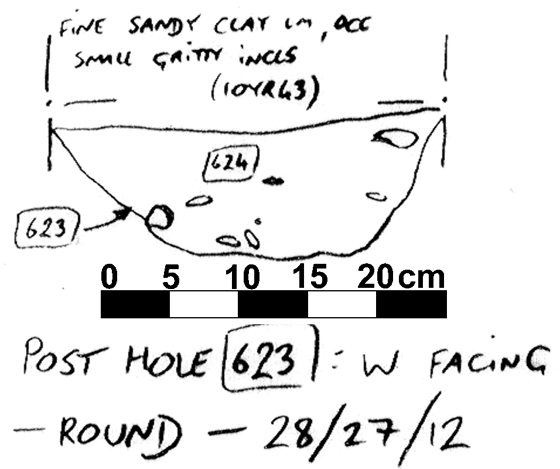 FINE SANDY CLAY LM, OCC
SMALL GRITTY INCLS
(10YR43)
624
623
0 5 10 15 20 cm
POST HOLE 623 : W FACING
- ROUND - 28/27/12